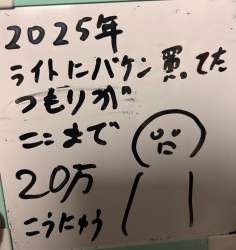 2025年
ライトにバケン買ってた
つもりが
ここまで
20万
こうにゅう